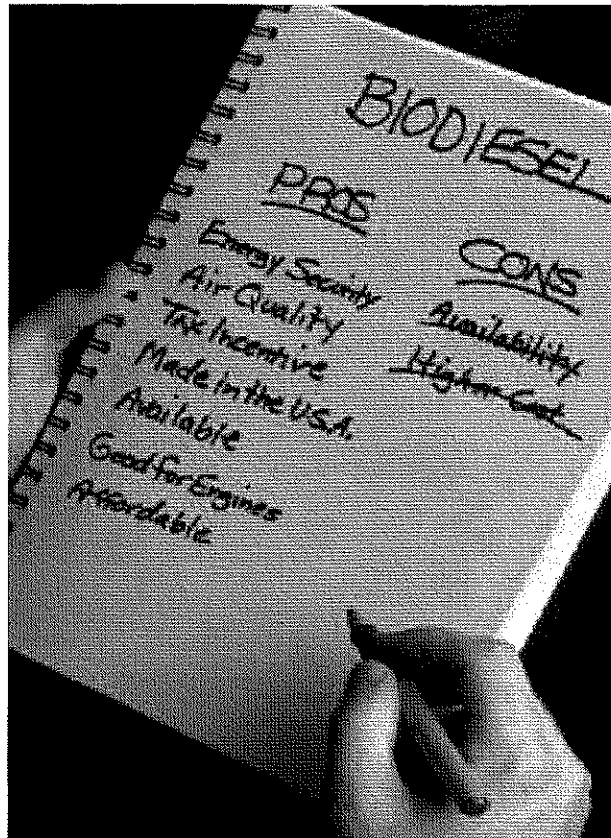 BIODIESEL
PROS
Energy Security
Air Quality
Tax Incentive
Made in the U.S.A.
Available
Good for Engines
Affordable
CONS
Availability
Higher Cost